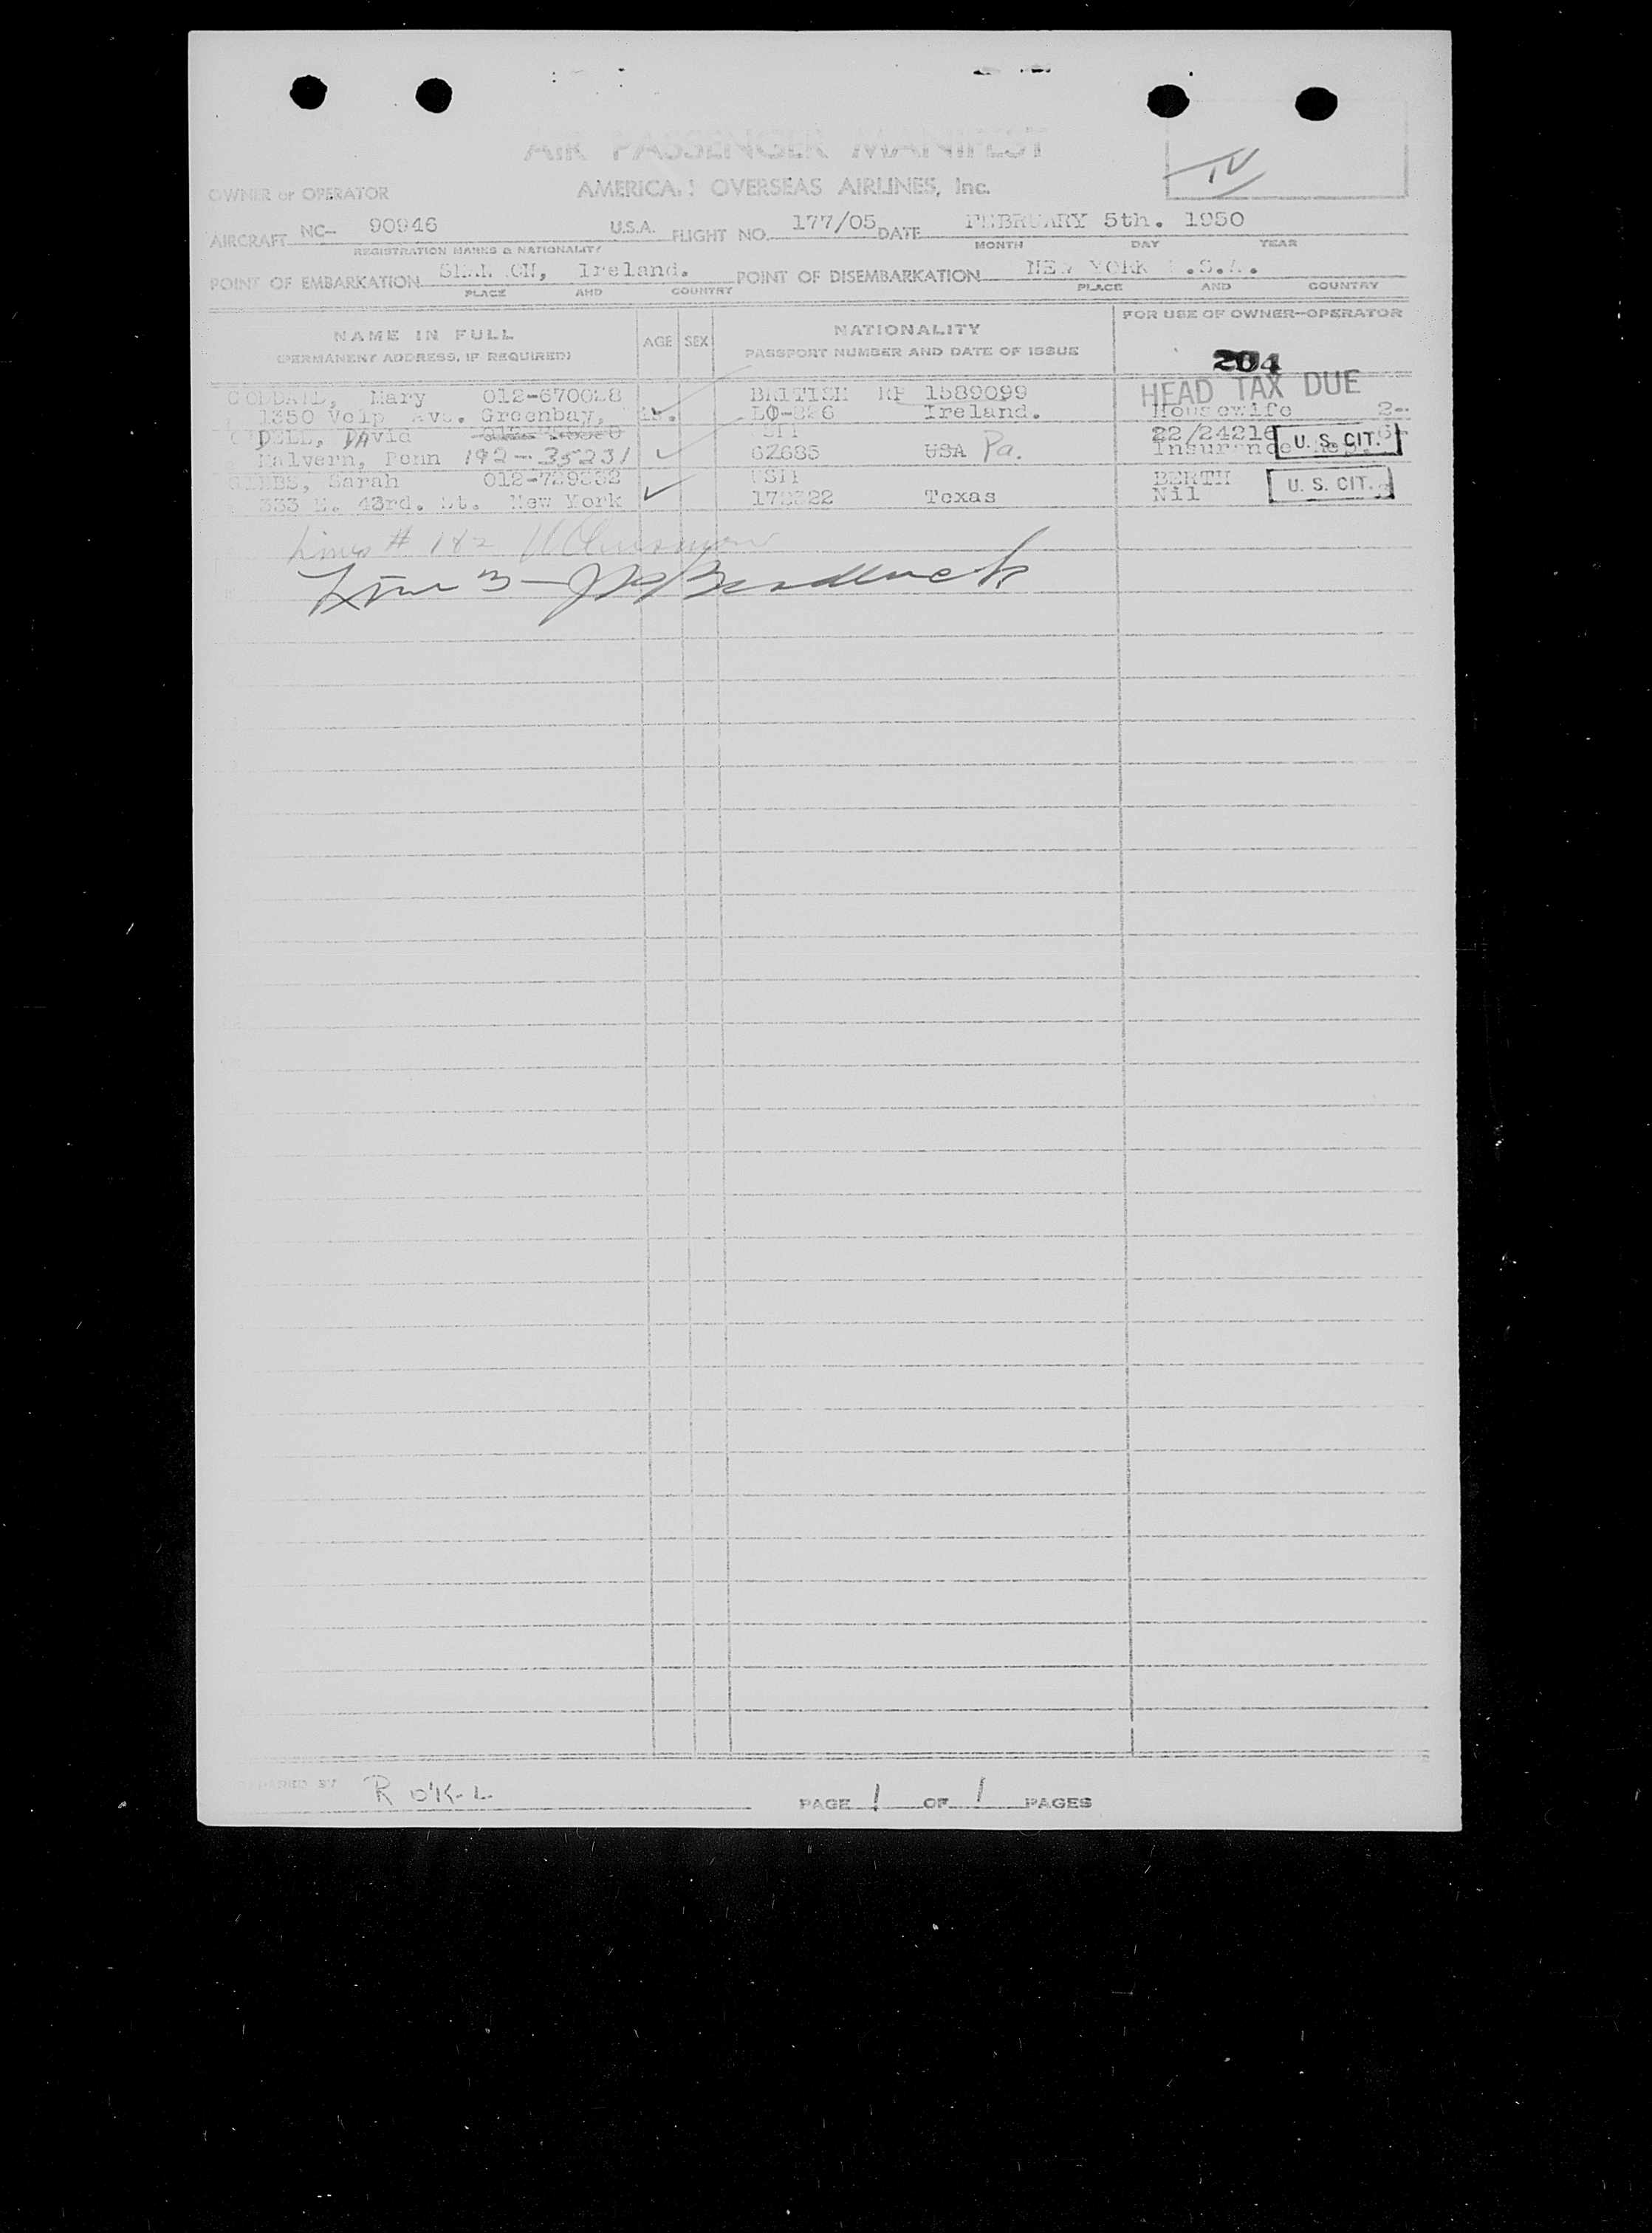 AIR PASSENGER MANIFEST
OWNER or OPERATOR AMERICAN OVERSEAS AIRLINES, Inc.
AIRCRAFT NC- 90946 U.S.A. FLIGHT NO. 177/05 DATE FEBRUARY 5th. 1950
REGISTRATION MARKS & NATIONALITY MONTH DAY YEAR
POINT OF EMBARKATION SHANNON, Ireland. POINT OF DISEMBARKATION NEW YORK U.S.A.
PLACE AND COUNTRY PLACE AND COUNTRY
NAME IN FULL AGE SEX NATIONALITY FOR USE OF OWNER-OPERATOR
(PERMANENT ADDRESS, IF REQUIRED) PASSPORT NUMBER AND DATE OF ISSUE
204
HEAD TAX DUE
Mary BRITISH RP 1589099
1350 Ave. Greenbay, Ireland. Housewife 2-
DELL, DAvid 22/24216
Malvern, Penn 192-35231 62685 USA Pa. Insurance U. S. CIT.
GIBBS, Sarah BERTH
333 E. 43rd. St. New York Texas Nil U. S. CIT.
Lines # 1&2
Line 3 -
R O'K-L PAGE 1 OF 1 PAGES